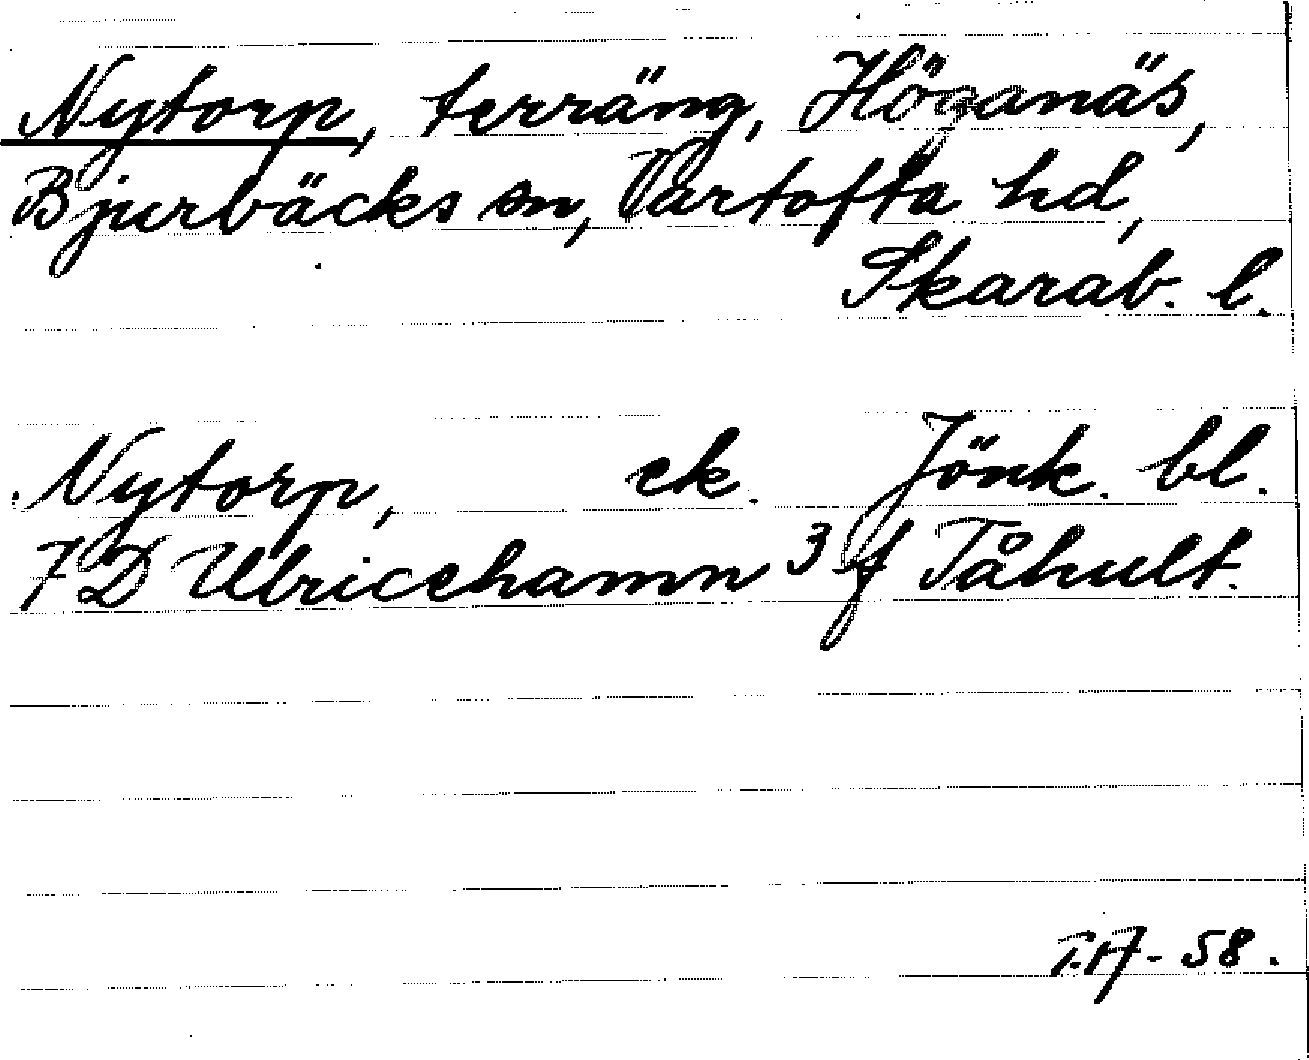 Nytorp, terräng, Höganäs,
Bjurbäcks sn, Vartofta hd,
Skarab. l.
Nytorp, ek. Jönk. bl.
7 D Ulricehamn 3 f Tåhult.
T.A - 58.